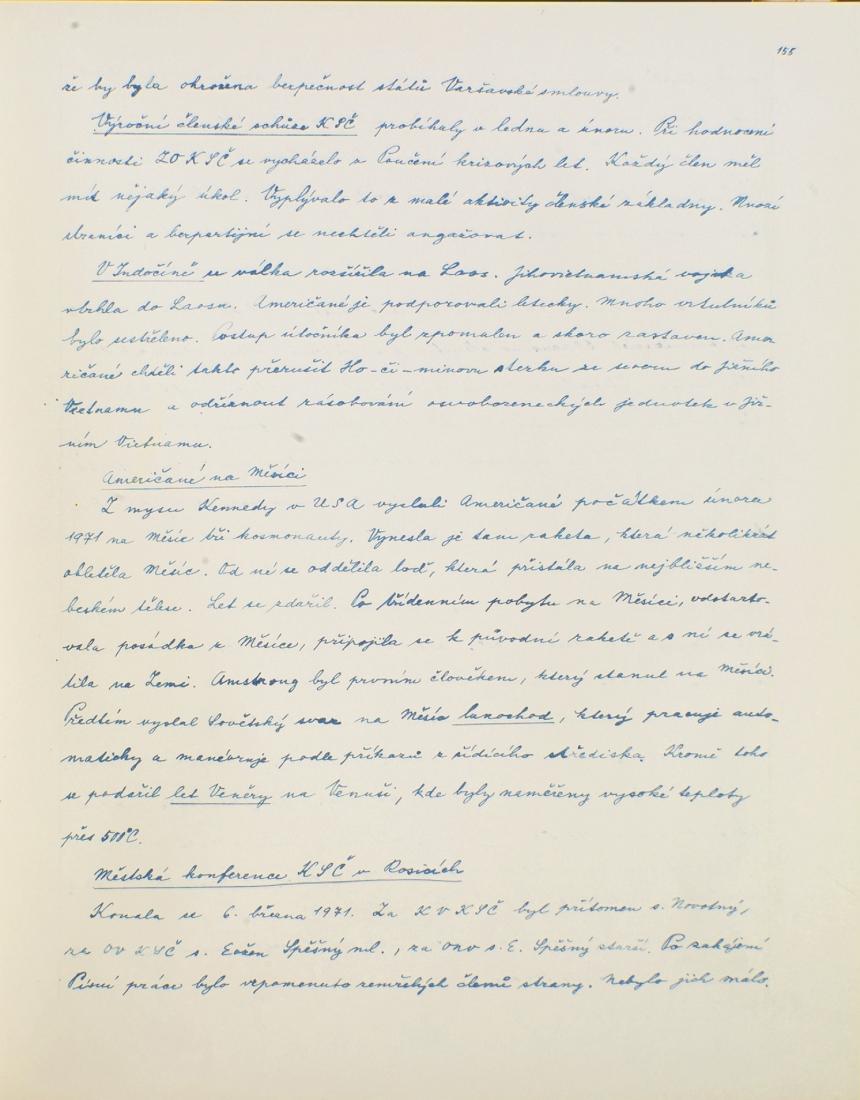 155
že by byla ohrožena bezpečnost států Varšavské smlouvy.
Výroční členské schůze KSČ probíhaly v lednu a únoru. Při hodnocení
činnosti ZO KSČ se vycházelo z Poučení krizových let. Každý člen měl
mít nějaký úkol. Vyplývalo to z malé aktivity členské základny. Mnozí
straníci a bezpartijní se nechtěli angažovat.
V Indočíně se válka rozšířila na Laos. Jihovietnamská vojska
vtrhla do Laosu. Američané je podporovali letecky. Mnoho vrtulníků
bylo sestřeleno. Postup útočníka byl zpomalen a skoro zastaven. Ame-
ričané chtěli takto přerušit Ho-či-minovu stezku ze severu do Jižního
Vietnamu a odříznout zásobování osvobozeneckých jednotek v Již-
ním Vietnamu.
Američané na Měsíci
Z mysu Kennedy v USA vyslali Američané počátkem února
1971 na Měsíc tři kosmonauty. Vynesla je tam raketa, která několikrát
obletěla Měsíc. Od ní se oddělila loď, která přistála na nejbližším ne-
beském tělese. Let se zdařil. Po třídenním pobytu na Měsíci, odstarto-
vala posádka z Měsíce, připojila se k původní raketě a s ní se vrá-
tila na Zemi. Amstrong byl prvním člověkem, který stanul na Měsíci.
Předtím vyslal Sovětský svaz na Měsíc lunochod, který pracuje auto-
maticky a manévruje podle příkazů z řídícího střediska. Kromě toho
se podařil let Veněry na Venuši, kde byly naměřeny vysoké teploty
přes 500°C.
Městská konference KSČ v Rosicích
Konala se 6. března 1971. Za KV KSČ byl přítomen s. Novotný,
za OV KSČ s. Evžen Spěšný ml., za ONV s. E. Spěšný starší. Po zahájení
Písní práce bylo vzpomenuto zemřelých členů strany. Nebylo jich málo.